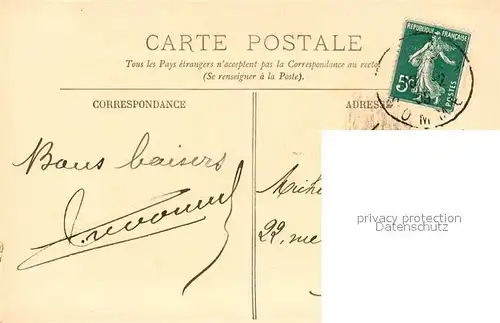 CARTE POSTALE
Tous les Pays étrangers n'acceptent pas la Correspondance au recto
(Se renseigner à la Poste).
RÉPUBLIQUE FRANÇAISE
5c
POSTES
CORRESPONDANCE
ADRESSE
Bons baisers
22, rue
privacy protection
Datenschutz